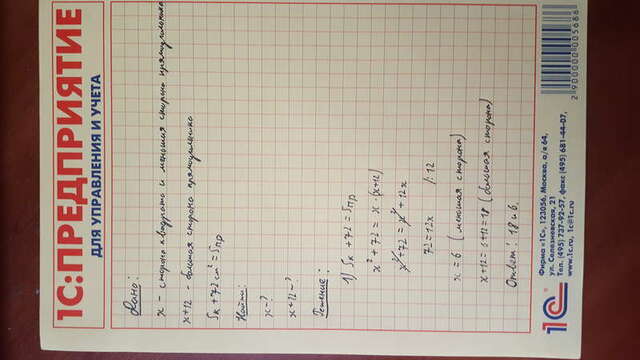 1С:ПРЕДПРИЯТИЕ
ДЛЯ УПРАВЛЕНИЯ И УЧЕТА
Дано:
x - сторона квадрата и меньшая сторона прямоугольника
x+12 - большая сторона прямоугольника
Sк + 72 см² = Sпр
Найти:
x - ?
x+12 - ?
Решение:
1) Sк + 72 = Sпр
x² + 72 = x · (x+12)
x² + 72 = x² + 12x
72 = 12x /: 12
x = 6 (меньшая сторона)
x+12 = 6+12 = 18 (большая сторона)
Ответ: 18 и 6.
1С
Фирма "1С", 123056, Москва, а/я 64,
ул. Селезневская, 21
Тел. (495) 737-92-57, факс (495) 681-44-07,
www.1c.ru, 1c@1c.ru
2 900000 005686